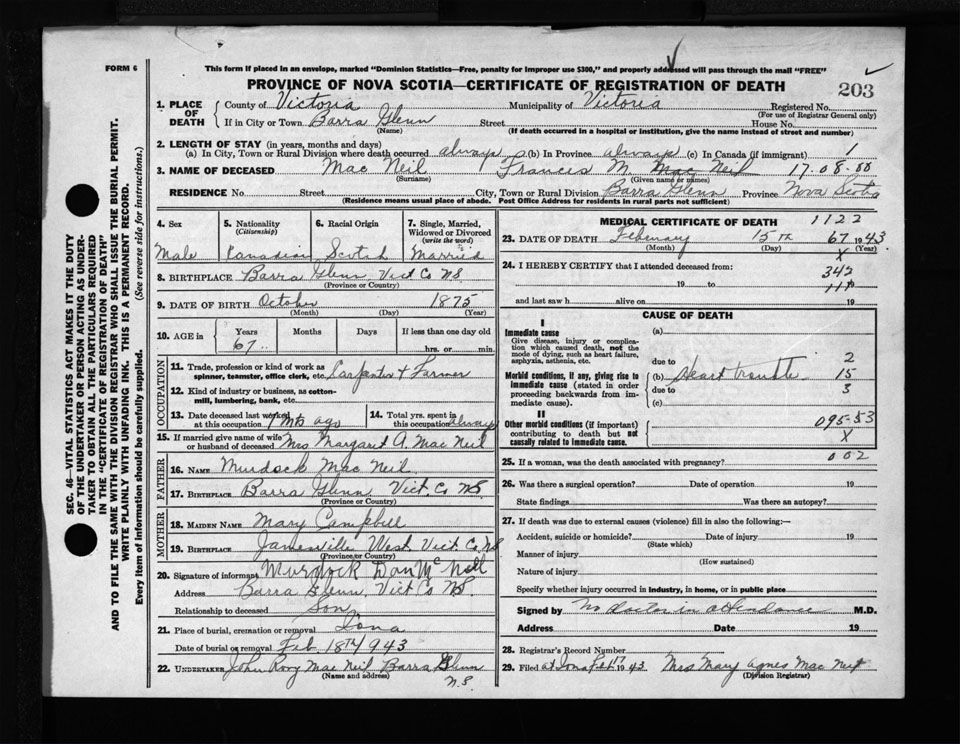 FORM 6
This form if placed in an envelope, marked "Dominion Statistics—Free, penalty for improper use $300," and properly addressed will pass through the mail "FREE"
PROVINCE OF NOVA SCOTIA—CERTIFICATE OF REGISTRATION OF DEATH
203
1. PLACE OF DEATH
County of Victoria Municipality of Victoria Registered No.
(For use of Registrar General only)
If in City or Town Barra Glenn Street House No.
(Name) (If death occurred in a hospital or institution, give the name instead of street and number)
2. LENGTH OF STAY (in years, months and days)
(a) In City, Town or Rural Division where death occurred always (b) In Province always (c) In Canada (if immigrant) 1
3. NAME OF DECEASED Mac Neil Francis M. Mac Neil 17-08-00
(Surname) (Given name or names)
RESIDENCE No. Street City, Town or Rural Division Barra Glenn Province Nova Scotia
(Residence means usual place of abode. Post Office Address for residents in rural parts not sufficient)
SEC. 46—VITAL STATISTICS ACT MAKES IT THE DUTY
OF THE UNDERTAKER OR PERSON ACTING AS UNDER-
TAKER TO OBTAIN ALL THE PARTICULARS REQUIRED
IN THE "CERTIFICATE OF REGISTRATION OF DEATH"
AND TO FILE THE SAME WITH THE DIVISION REGISTRAR WHO SHALL ISSUE THE BURIAL PERMIT.
WRITE PLAINLY WITH UNFADING INK. THIS IS A PERMANENT RECORD.
Every item of information should be carefully supplied. (See reverse side for instructions.)
4. Sex
Male
5. Nationality
(Citizenship)
Canadian
6. Racial Origin
Scotch
7. Single, Married,
Widowed or Divorced
(write the word)
Married
8. BIRTHPLACE Barra Glenn Vict Co NS
(Province or Country)
9. DATE OF BIRTH October 1875
(Month) (Day) (Year)
10. AGE in Years Months Days If less than one day old
67 hrs. or min.
OCCUPATION
11. Trade, profession or kind of work as
spinner, teamster, office clerk, etc. Carpenter & Farmer
12. Kind of industry or business, as cotton-
mill, lumbering, bank, etc.
13. Date deceased last worked
at this occupation 1 mts ago
14. Total yrs. spent in
this occupation always
15. If married give name of wife
or husband of deceased Mrs Margaret A. Mac Neil
FATHER
16. NAME Murdock Mac Neil
17. BIRTHPLACE Barra Glenn Vict. Co NS
(Province or Country)
MOTHER
18. MAIDEN NAME Mary Campbell
19. BIRTHPLACE Jamesville West Vict. Co NS
(Province or Country)
20. Signature of informant Murdock Dan McNeil
Address Barra Glenn, Vict Co NS
Relationship to deceased Son
21. Place of burial, cremation or removal Iona
Date of burial or removal Feb 18TH 1943
22. UNDERTAKER John Rory Mac Neil Barra Glenn
(Name and address) N.S.
MEDICAL CERTIFICATE OF DEATH 1122
23. DATE OF DEATH February 15TH 67 1943
(Month) (Day) (Year)
X
24. I HEREBY CERTIFY that I attended deceased from:
342
19 to 19
and last saw h alive on 19
CAUSE OF DEATH
I
Immediate cause (a)
Give disease, injury or complica-
tion which caused death, not the
mode of dying, such as heart failure,
asphyxia, asthenia, etc.
due to 2
Morbid conditions, if any, giving rise to
immediate cause (stated in order
proceeding backwards from im-
mediate cause).
(b) Heart trouble 15
due to 3
(c)
II
Other morbid conditions (if important)
contributing to death but not
causally related to immediate cause.
095-53
X
25. If a woman, was the death associated with pregnancy? 002
26. Was there a surgical operation? Date of operation 19
State findings Was there an autopsy?
27. If death was due to external causes (violence) fill in also the following:—
Accident, suicide or homicide? Date of injury 19
(State which)
Manner of injury
(How sustained)
Nature of injury
Specify whether injury occurred in industry, in home, or in public place
Signed by No doctor in attendance M.D.
Address Date 19
28. Registrar's Record Number
29. Filed at Iona Feb 17 1943 Mrs Mary Agnes Mac Neil
(Division Registrar)